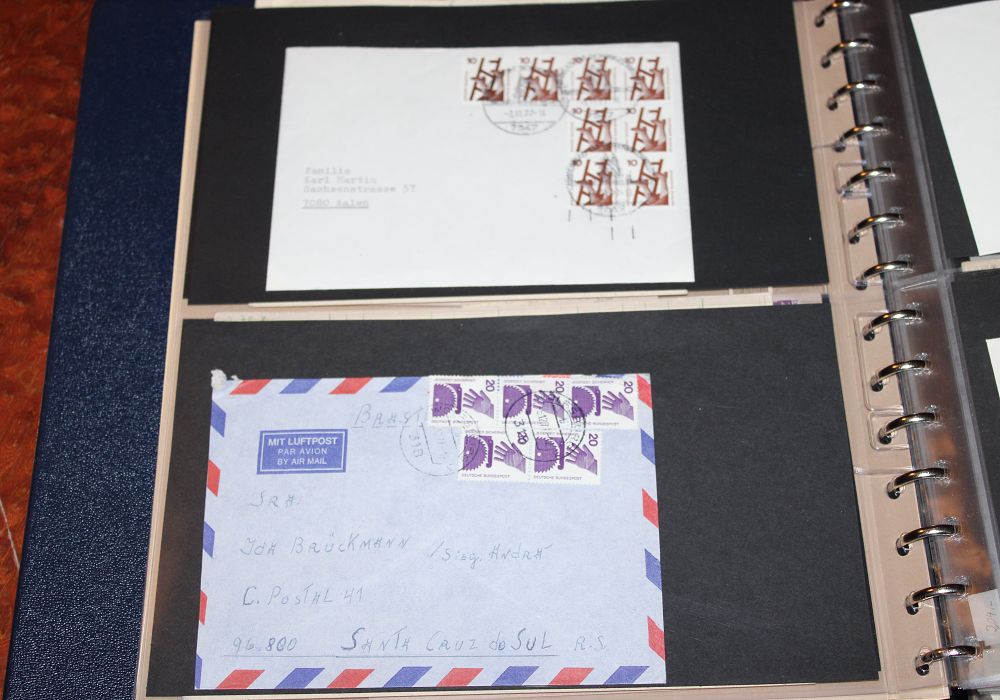 10 10 10 10
10 10
10 10
7547
Familie
Karl Martin
Sachsenstrasse 57
7080 Aalen
20 20 20
DEUTSCHE BUNDESPOST
20
DEUTSCHE BUNDESPOST DEUTSCHE BUNDESPOST
MIT LUFTPOST
PAR AVION
BY AIR MAIL
SRA.
IDA BRÜCKMANN /SIEG. ANDRÄ
C. POSTAL 41
96.800 SANTA CRUZ do SUL R.S.